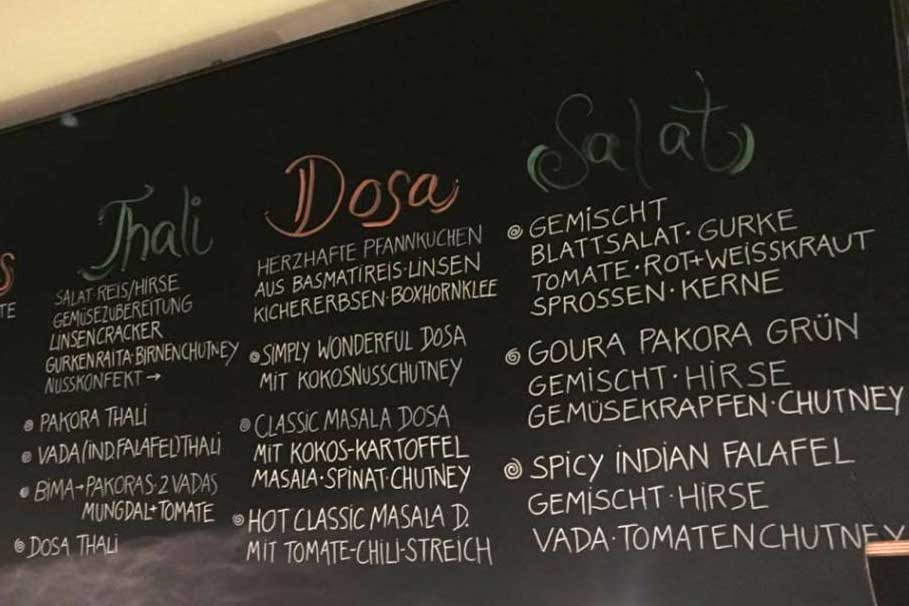 S
TE
Thali
SALAT·REIS/HIRSE
GEMÜSEZUBEREITUNG
LINSENCRACKER
GURKENRAITA·BIRNENCHUTNEY
NUSSKONFEKT→
PAKORA THALI
VADA(IND.FALAFEL)THALI
BIMA→PAKORAS·2 VADAS
MUNGDAL+TOMATE
DOSA THALI
Dosa
HERZHAFTE PFANNKUCHEN
AUS BASMATIREIS·LINSEN
KICHERERBSEN·BOXHORNKLEE
SIMPLY WONDERFUL DOSA
MIT KOKOSNUSSCHUTNEY
CLASSIC MASALA DOSA
MIT KOKOS-KARTOFFEL
MASALA·SPINAT·CHUTNEY
HOT CLASSIC MASALA D.
MIT TOMATE-CHILI-STREICH
Salat
GEMISCHT
BLATTSALAT·GURKE
TOMATE·ROT+WEISSKRAUT
SPROSSEN·KERNE
GOURA PAKORA GRÜN
GEMISCHT·HIRSE
GEMÜSEKRAPFEN·CHUTNEY
SPICY INDIAN FALAFEL
GEMISCHT·HIRSE
VADA·TOMATENCHUTNEY